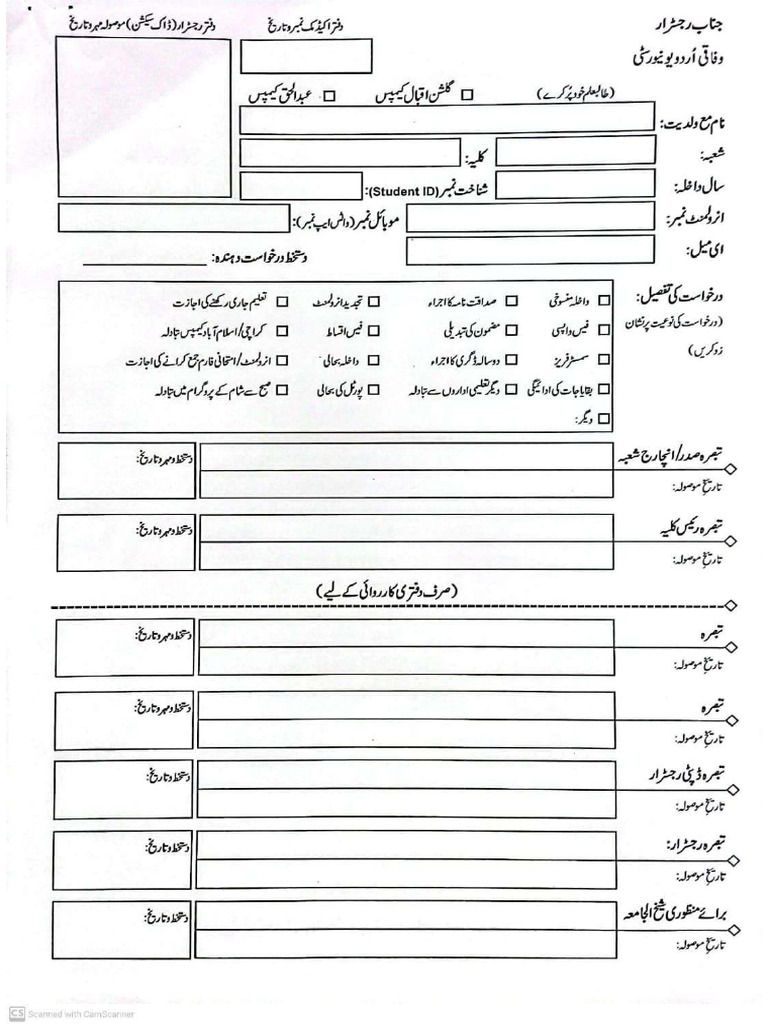 جناب رجسٹرار
دفتر اکیڈمک نمبر و تاریخ
دفتر رجسٹرار (ڈاک سیکشن) موصولہ مہر و تاریخ
وفاقی اُردو یونیورسٹی
(طالبعلم خود پُر کرے) ☐ گلشن اقبال کیمپس ☐ عبدالحق کیمپس
نام مع ولدیت:
شعبہ: کلیہ:
سال داخلہ: شناخت نمبر (Student ID):
انرولمنٹ نمبر: موبائل نمبر (واٹس ایپ نمبر):
ای میل: دستخط درخواست دہندہ:
درخواست کی تفصیل: ☐ داخلہ منسوخی ☐ صداقت نامہ کا اجراء ☐ تجدید انرولمنٹ ☐ تعلیم جاری رکھنے کی اجازت
(درخواست کی نوعیت پر نشان ☐ فیس واپسی ☐ مضمون کی تبدیلی ☐ فیس اقساط ☐ کراچی/اسلام آباد کیمپس تبادلہ
زد کریں) ☐ سمسٹر فریز ☐ دو سالہ ڈگری کا اجراء ☐ داخلہ بحالی ☐ انرولمنٹ/امتحانی فارم جمع کرانے کی اجازت
☐ بقایاجات کی ادائیگی ☐ دیگر تعلیمی اداروں سے تبادلہ ☐ پورٹل کی بحالی ☐ صبح سے شام کے پروگرام میں تبادلہ
☐ دیگر:
تبصرہ صدر/انچارج شعبہ دستخط و مہر و تاریخ:
تاریخ موصولہ:
تبصرہ رئیس کلیہ دستخط و مہر و تاریخ:
تاریخ موصولہ:
(صرف دفتری کارروائی کے لیے)
تبصرہ دستخط و مہر و تاریخ:
تاریخ موصولہ:
تبصرہ دستخط و مہر و تاریخ:
تاریخ موصولہ:
تبصرہ ڈپٹی رجسٹرار دستخط و تاریخ:
تاریخ موصولہ:
تبصرہ رجسٹرار: دستخط و تاریخ:
تاریخ موصولہ:
برائے منظوری شیخ الجامعہ دستخط و تاریخ:
تاریخ موصولہ:
CS Scanned with CamScanner